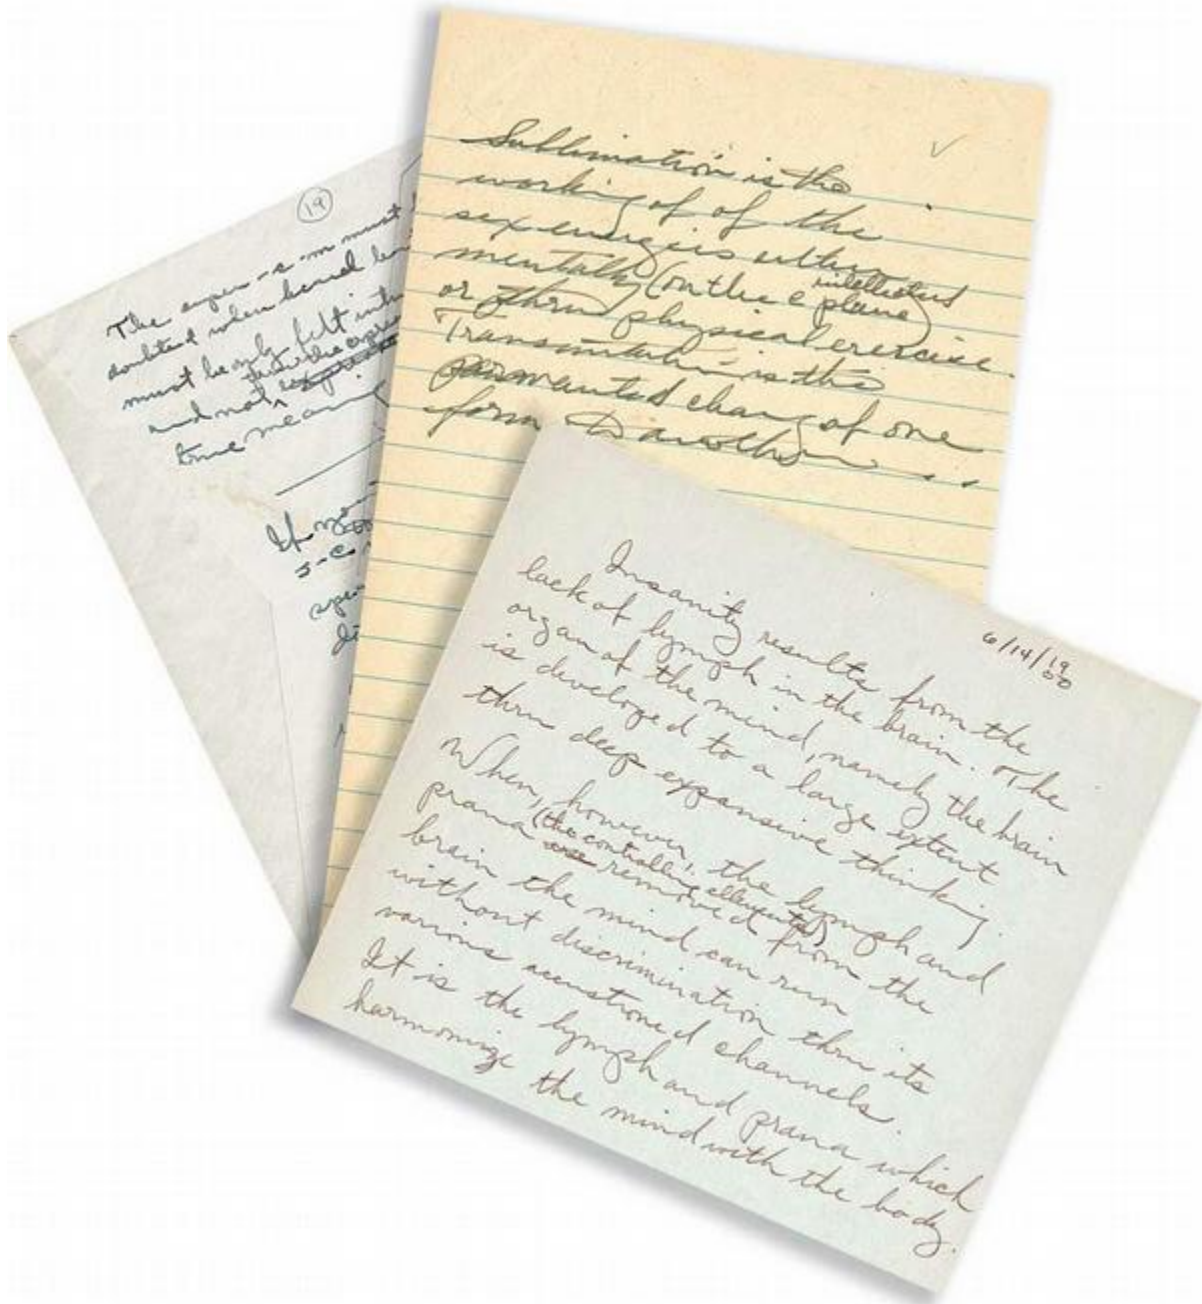 19
The super-c-m must
doubted when
must be only felt
thru the
and not
true meaning
If
S-C
Sublimation is the
working of of the
sex energies either
intellectual
mentally (on the c plane)
or thru physical exercise.
Transmutation is the
permanted change of one
form to another...
6/14/19
00
Insanity results from the
lack of lymph in the brain. The
organ of the mind, namely the brain
is develoged to a large extent
thru deep expansive thinking.
When, however, the lymph and
prana (the controlling ellements)
are removed from the
brain the mind can run
without discrimination thru its
various accustioned channels.
It is the lymph and prana which
harmonize the mind with the body.